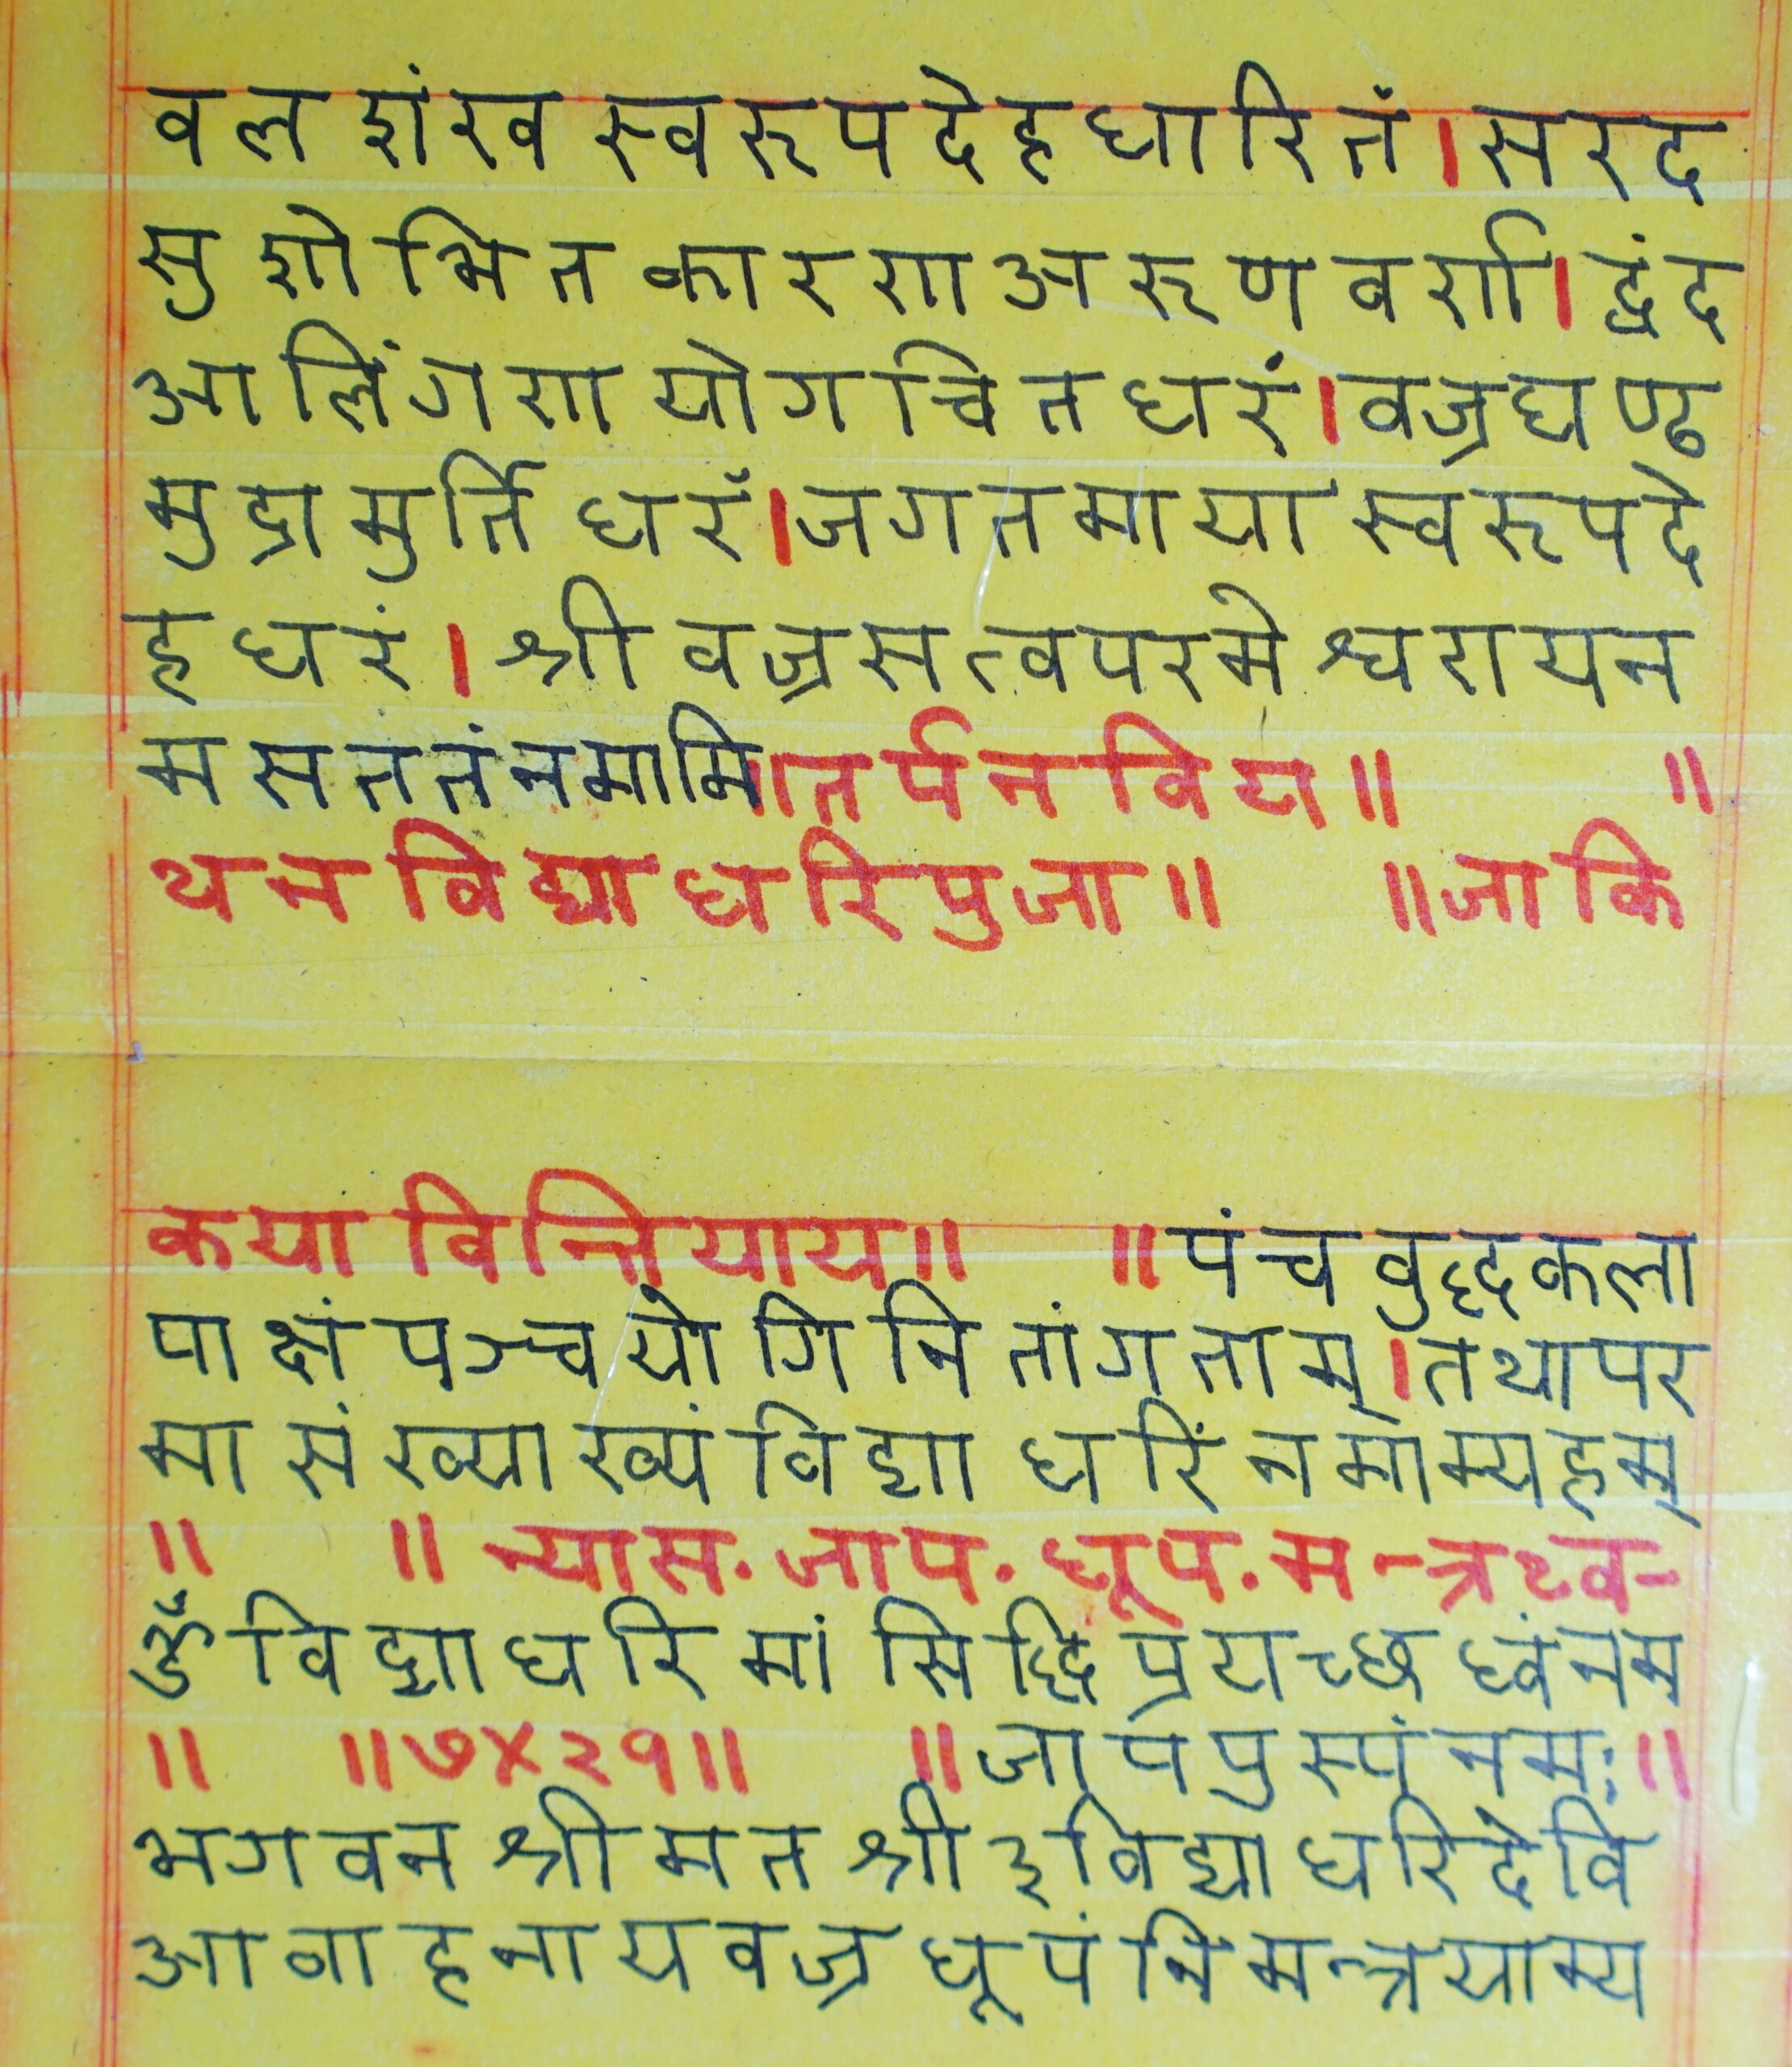 वल शंख स्वरूप देह धारितं । सरद
सुशोभित कारण अरूण वर्ण । द्वंद
आलिंगण योगचित धरं । वज्रघण्ढ
मुद्रा मुर्ति धरँ । जगत माया स्वरूप दे
ह धरं । श्री वज्रसत्व परमेश्वराय न
म सततं नमामि ॥ तर्पन विय ॥ ॥
थन विद्याधरि पुजा ॥ ॥ जाकि
कया विन्तियाय ॥ ॥ पंच वुद्ध कला
पाक्षं पञ्च योगिनितांगताम् । तथा पर
मा संख्याख्यं विद्याधरिं नमाम्यहम्
॥ ॥ न्यास. जाप. धूप. मन्त्रथ्व-
ॐ विद्याधरि मां सिद्धि प्रयच्छ ध्वं नम
॥ ॥ ७ X २१ ॥ ॥ जाप पुस्पं नमः ॥
भगवन श्रीमत श्री ३ विद्याधरि देवि
आवाहनाय वज्र धूपं निमन्त्रयाम्य